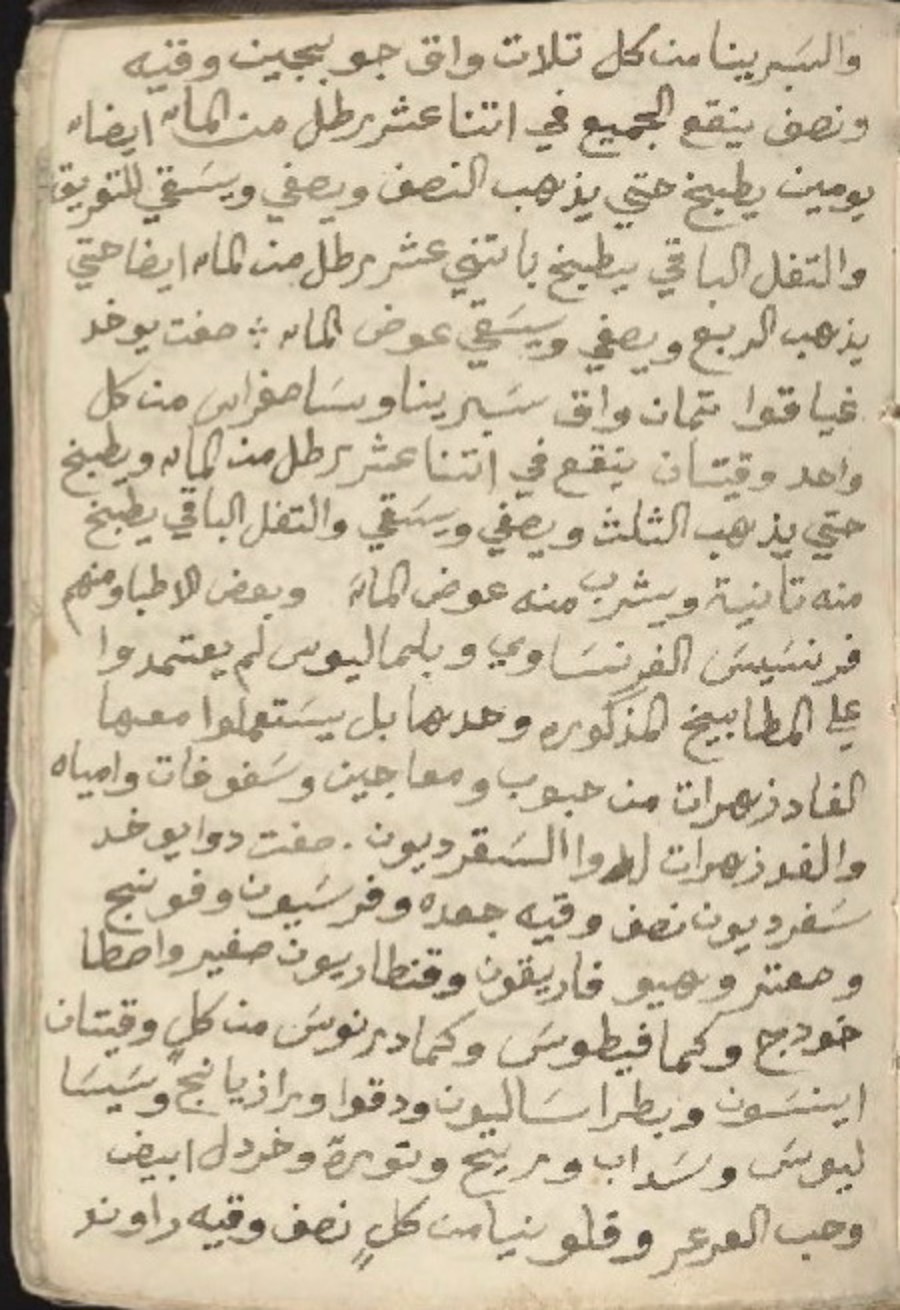 والسبرينا من كل تلات واق جوبجين وقيه
ونصف ينقع الجميع في اتنا عشر رطل من الماء ايضاء
يومين يطبيخ حتي يذهب النصف ويصفي ويسقي للتعريق
والتفل الباقي يطبيخ باتني عشر رطل من الماء ايضا حتي
يذهب الربع ويصفي ويسقي عوض الماء ∴ صفت يوخد
غياقوا تمان واق سبرينا وسا صفراس من كل
واحد وقيتان ينقع في اتنا عشر رطل من الماء ويطبخ
حتي يذهب الثلث ويصفي ويسقي والتفل الباقي يطبخ
منه تانية ويشرب منه عوض الماء وبعض الاطبا ومنهم
فرنسيس الفرنساوي وبلماليوس لم يعتمدوا
علي المطابيخ المذكوره وحدها بل يستعملوا معها
الفادزهرات من حبوب ومعاجين وسفوفات وامياه
والفدزهرات السقرديون . صفت دوا يوخد
سفرديون نصف وقيه جعده وفرسيون وفوننج
وصعتر وهيو فاريقون وقنطاريون صغير واصطا
خودج وكمافيطوس وكمادرنوس من كل وقيتان
اينسون وبطراساليون ودقوا ورازيانج وسيسا
ليوس وسداب ورييح وتورة وخردل ابيض
وحب العرعر وقلونيا من كل نصف وقيه راوند